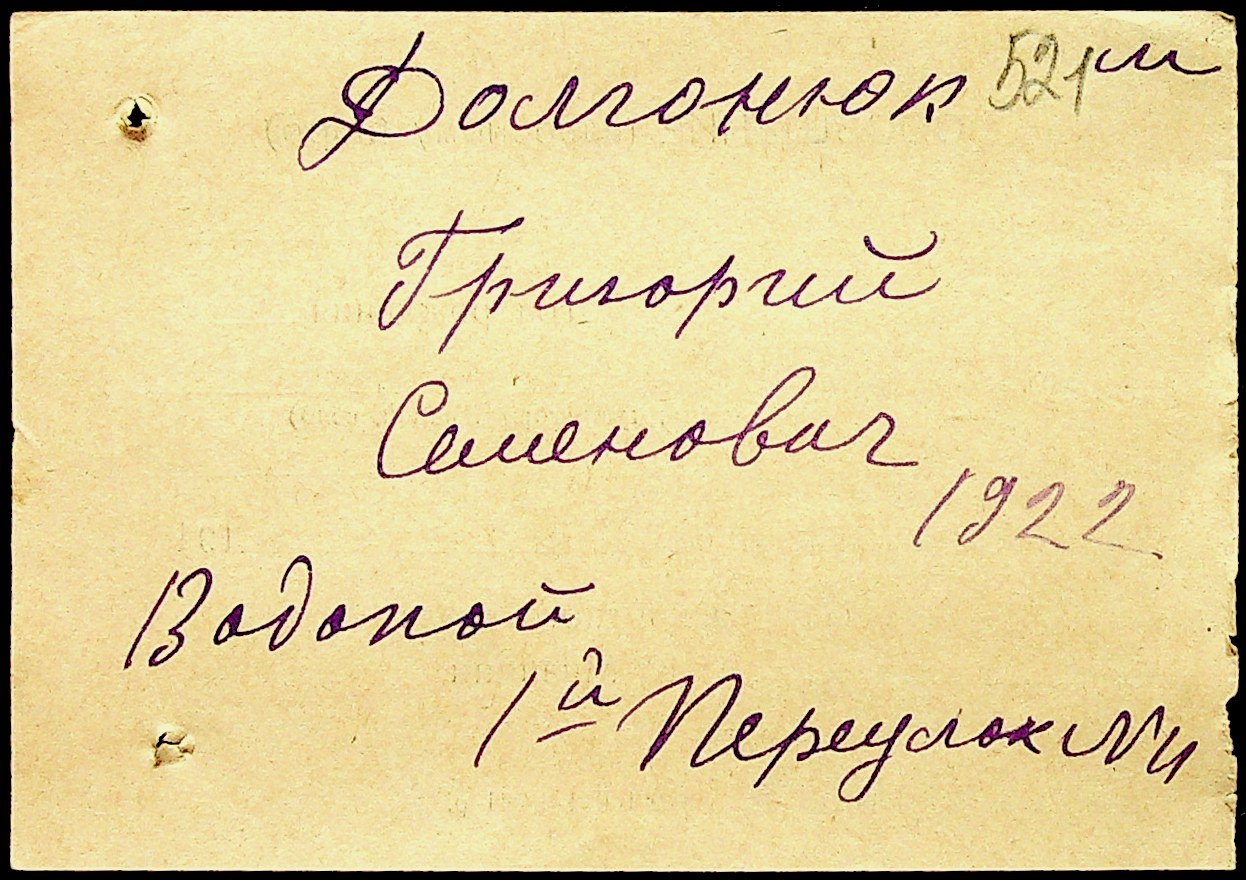 Долгонюк 521
Григорий
Семенович
1922
Водопой
1й Переулок № 11